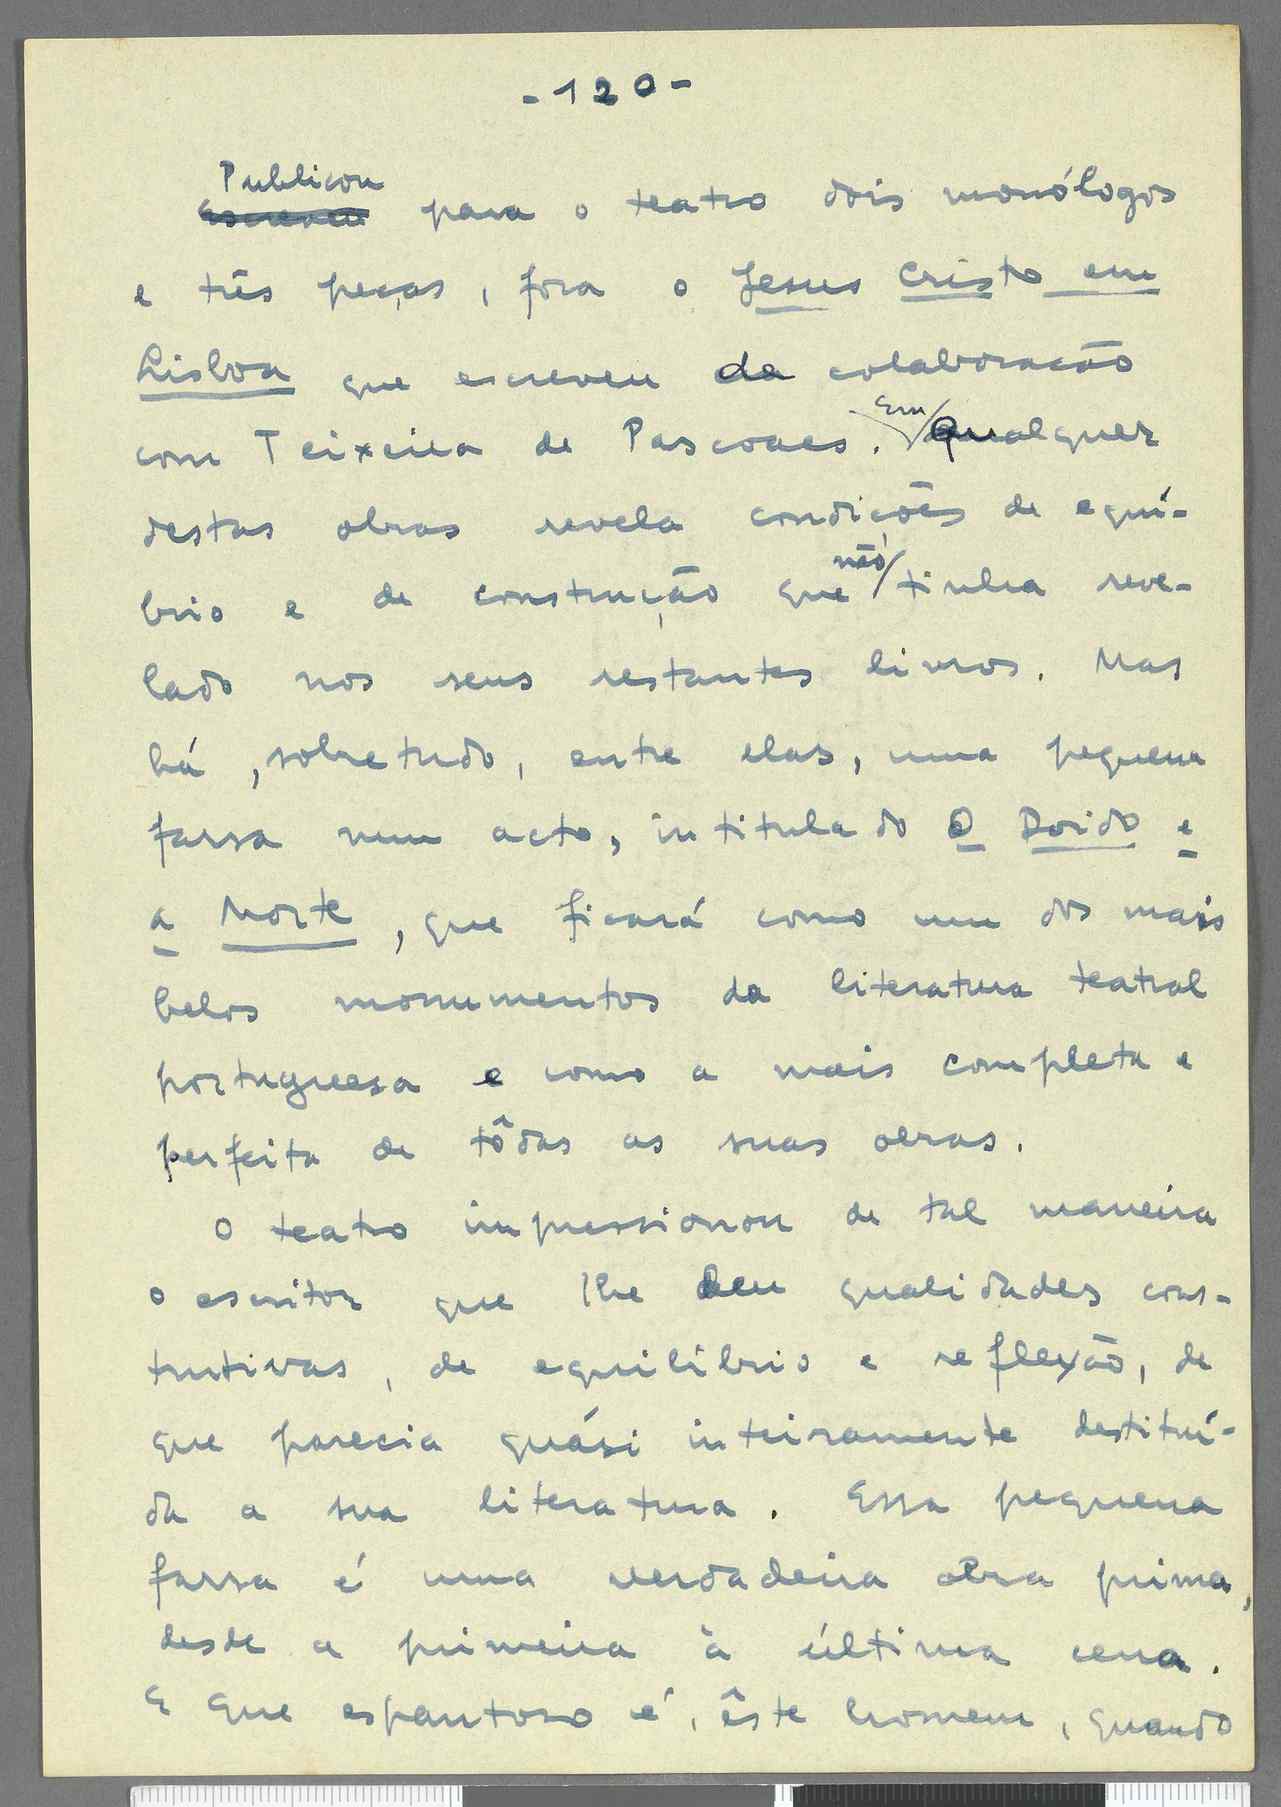 -120-
Publicou
Escreveu para o teatro dois monólogos
e três peças, fora o Jesus Cristo em
Lisboa que escreveu de colaboração
com Teixeira de Pascoaes. Em qualquer
destas obras revela condições de equi-
brio e de construção que não tinha reve-
lado nos seus restantes livros. Mas
há, sobretudo, entre elas, uma pequena
farsa num acto, intitulado O Doido e
a Morte, que ficará como um dos mais
belos monumentos da literatura teatral
portuguesa e como a mais completa e
perfeita de tôdas as suas obras.
O teatro impressionou de tal maneira
o escritor que lhe deu qualidades cons-
trutivas, de equilíbrio e reflexão, de
que parecia quási inteiramente destituí-
da a sua literatura. Essa pequena
farsa é uma verdadeira obra prima,
desde a primeira à última cena.
E que espantoso é, êste homem, quando